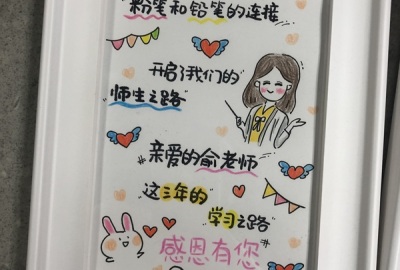 粉笔和铅笔的连接
开启了我们的
"师生之路"
亲爱的俞老师
这三年的
学习之路
感恩有您